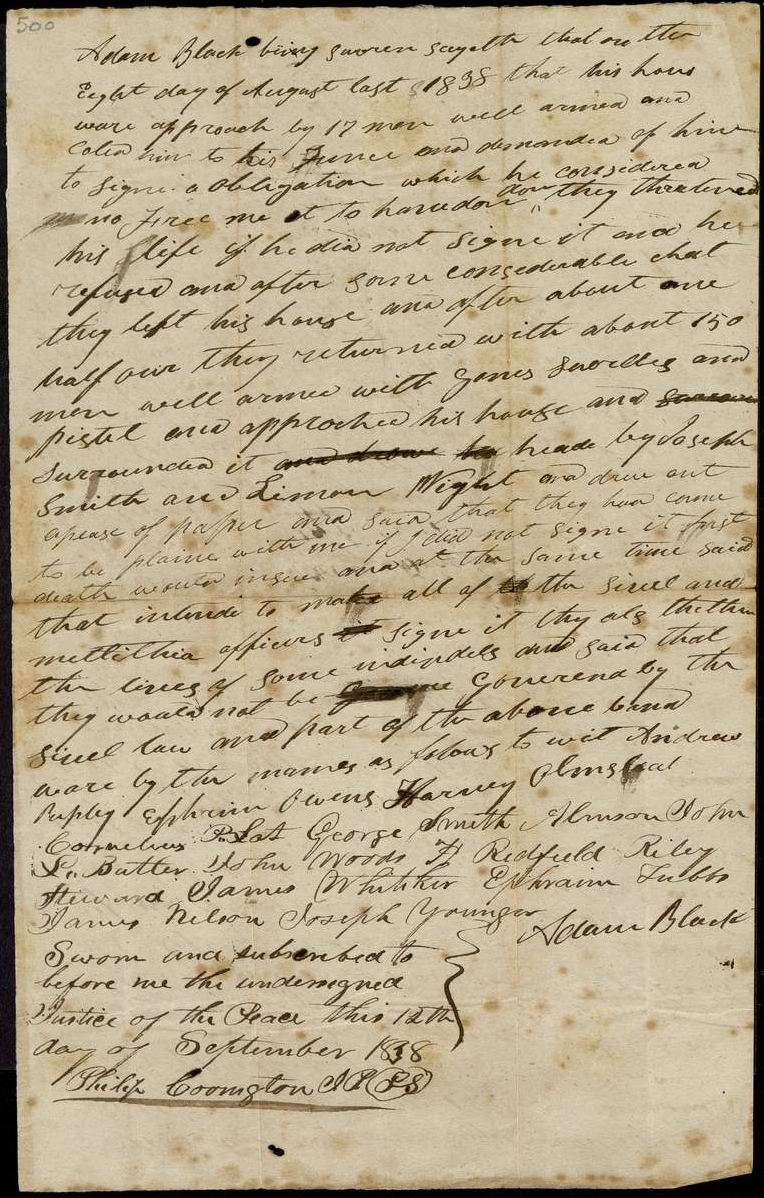 500
Adam Black being sworen sayeth that on the
Eight day of August last 1838 that his hous
ware approach by 17 men well armed and
Coled him to his Fence and demanded of him
to signe a obligation which he considered
no Free me et to have don they thratened
his life if he did not signe it and he
refused and after some considerable chat
they left his house and after about one
half our they returned with about 150
men well armed with gones swordes and
pistel and approched his house and
surrounded it heade by Joseph
Smith and Limon Wight and drew out
apease of papper and said that they had come
to be plaine with me if I did not signe it first
death would insue and at the same time said
that intende to make all of the sivel and
mellithia officers signe it they als thethen
the lives of some indindels and said that
they would not be Goverend by the
sivel law and part of the above band
ware by the names as folows to wit Andrew
Ripley Ephrim Owens Harvey Olmstead
Cornelius P. Lot George Smith Almson John
L. Butler John Woods H Redfield Riley
Steward James Whitiker Ephraim Tubbs
James Nelson Joseph Younger
Adam Black
Sworn and subscribed to
before me the undersigned
Justice of the Peace this 12th
day of September 1838
Philip Covington J P (LS)